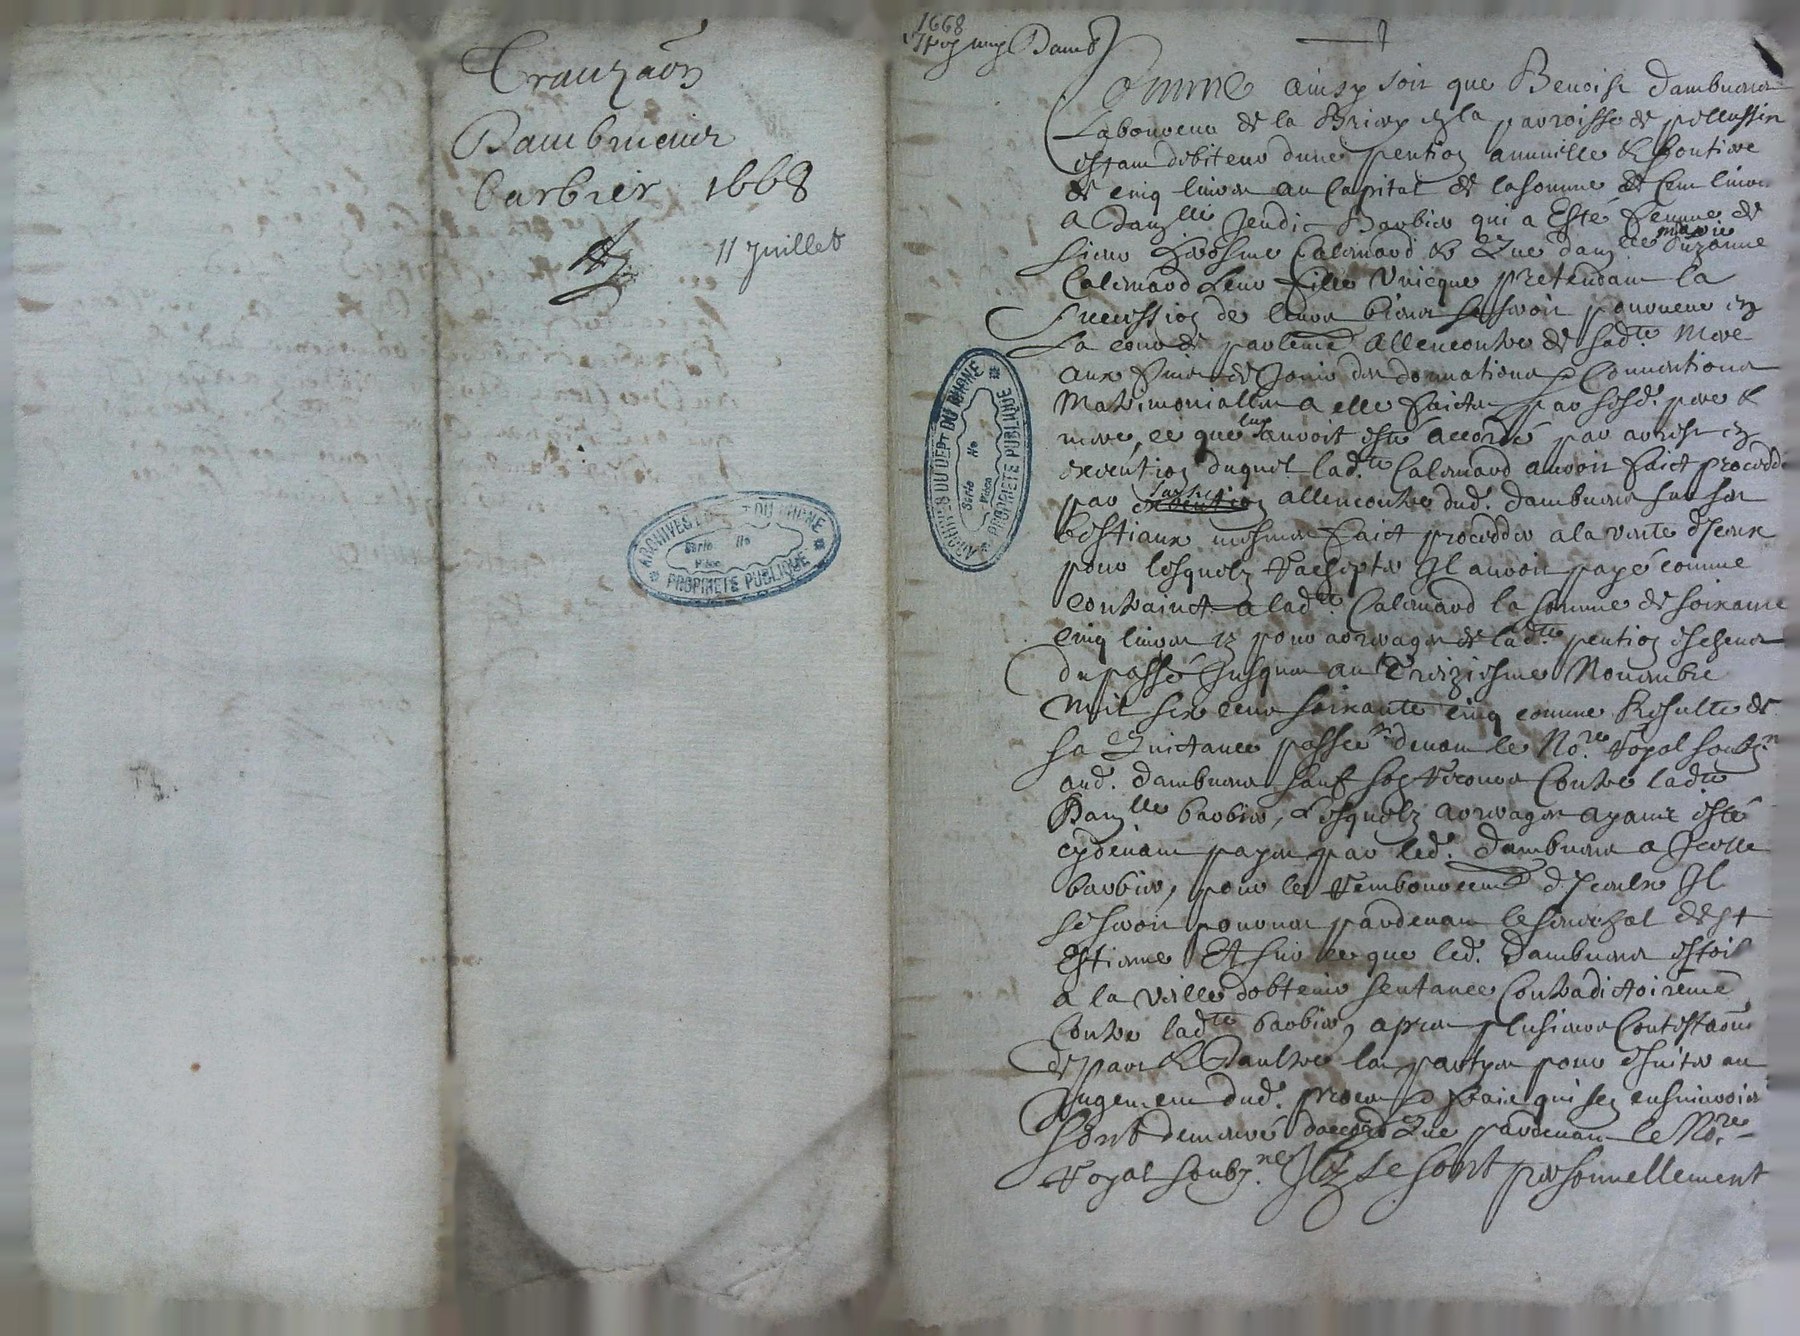 Tranzaon
Dambuener
Barbier 1668
11 Juillet
ARCHIVES DU DEPT DU RHONE
Série No
Pièce
PROPRIETE PUBLIQUE
1668
Comme ainsy soit que Benoist Dambuener
Laboureur de la Brierp en la parroisse de pellussin
estant debiteur dune pention annuelle & fontiere
de cinq livres au Capital de la somme de Cent livres
a Damlle Barbier qui a Esté femme de
sieur Calemard & Que damlle marie Suzanne
Calemard Leur fille Unicque pretendant la
succession de leurs biens se seroit pourveue en
La cour de parlemt allencontre de sadte Mere
aux fins de Jouir des donnations & Conventions
Matrimonialles a elle faictes par sesd. pere &
mere, ce que luy auroit esté accordé par arrest en
execution duquel ladte Calemard auroit faict proceder
par saisie allencontre dud. Dambuener sur ses
bestiaux mesmes faict proceder a la vente dyceux
pour lesquelz rachepter Il auroit payé comme
contrainct a ladte Calemard la somme de soixante
cinq livres pour arrerages de ladte pention escheus
du passé Jusques au Treiziesme Novembre
Mil six cens soixante cinq comme Resulte de
sa Quictance passée devant le Nore Royal soubzn
aud. Dambuener sauf son recours Contre ladte
Damlle barbier, Lesquelz arrerages ayant esté
cydevant payes par led. Dambuener a Icelle
barbier, pour le remboursemt dyceulx Il
se seroit pourveu pardevant le senechal de St
Estienne Et sur ce que led. Dambuener estoit
a la veille dobtenir sentance Contradictoiremt
Contre ladte barbier, apres plusieurs Contestaons
de part & Daultre les partyes pour esviter au
Jugement dud. proces & frais qui sen ensuivroient
sont demeuré daccord Que pardevant le Nore
Royal soubzne Ilz se sont personnellement
ARCHIVES DU DEPT DU RHONE
Série No
Pièce
PROPRIETE PUBLIQUE